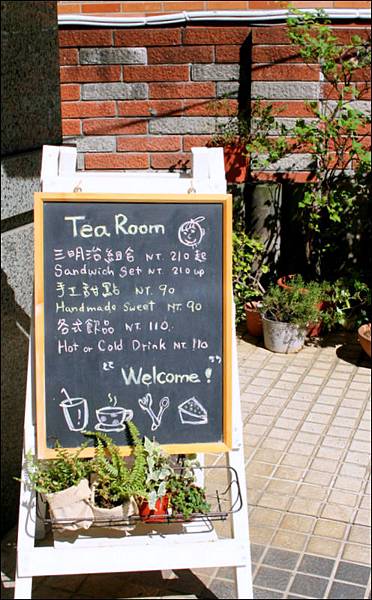 Tea Room
三明治組合 NT. 210 起
Sandwich Set NT. 210 up
手工甜點 NT. 90
Handmade Sweet NT. 90
各式飲品 NT 110.
Hot or Cold Drink NT. 110
Welcome!